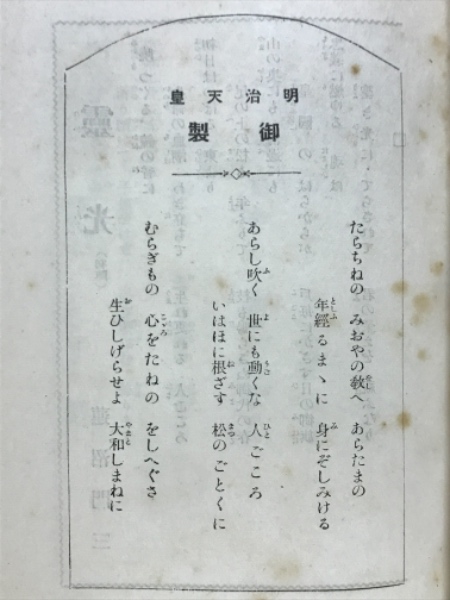 明治天皇
御製
たらちねの　みおやの教へ　あらたまの
年經るまゝに　身にぞしみける
あらし吹く　世にも動くな　人ごころ
いはほに根ざす　松のごとくに
むらぎもの　心をたねの　をしへぐさ
生ひしげらせよ　大和しまねに